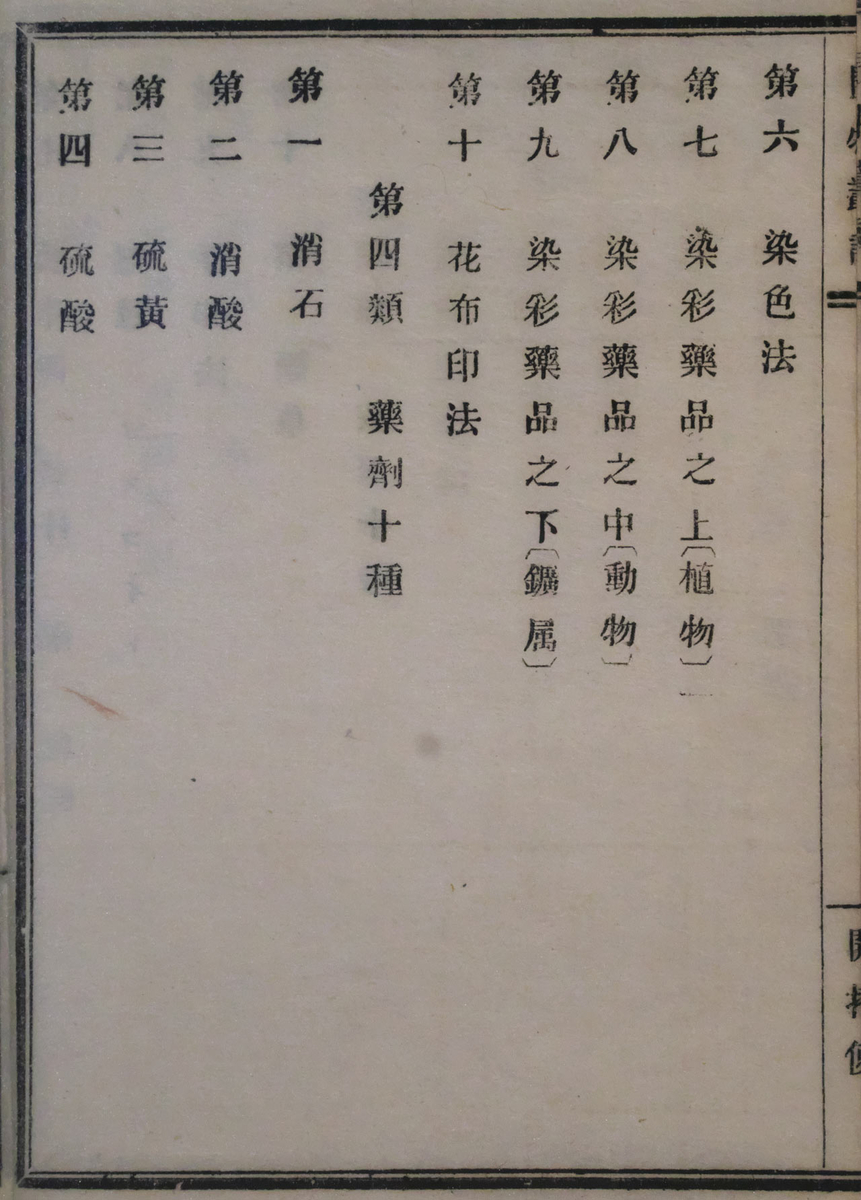 第六　染色法
第七　染彩藥品之上〔植物〕
第八　染彩藥品之中〔動物〕
第九　染彩藥品之下〔鑛属〕
第十　花布印法
第四類　藥劑十種
第一　消石
第二　消酸
第三　硫黃
第四　硫酸